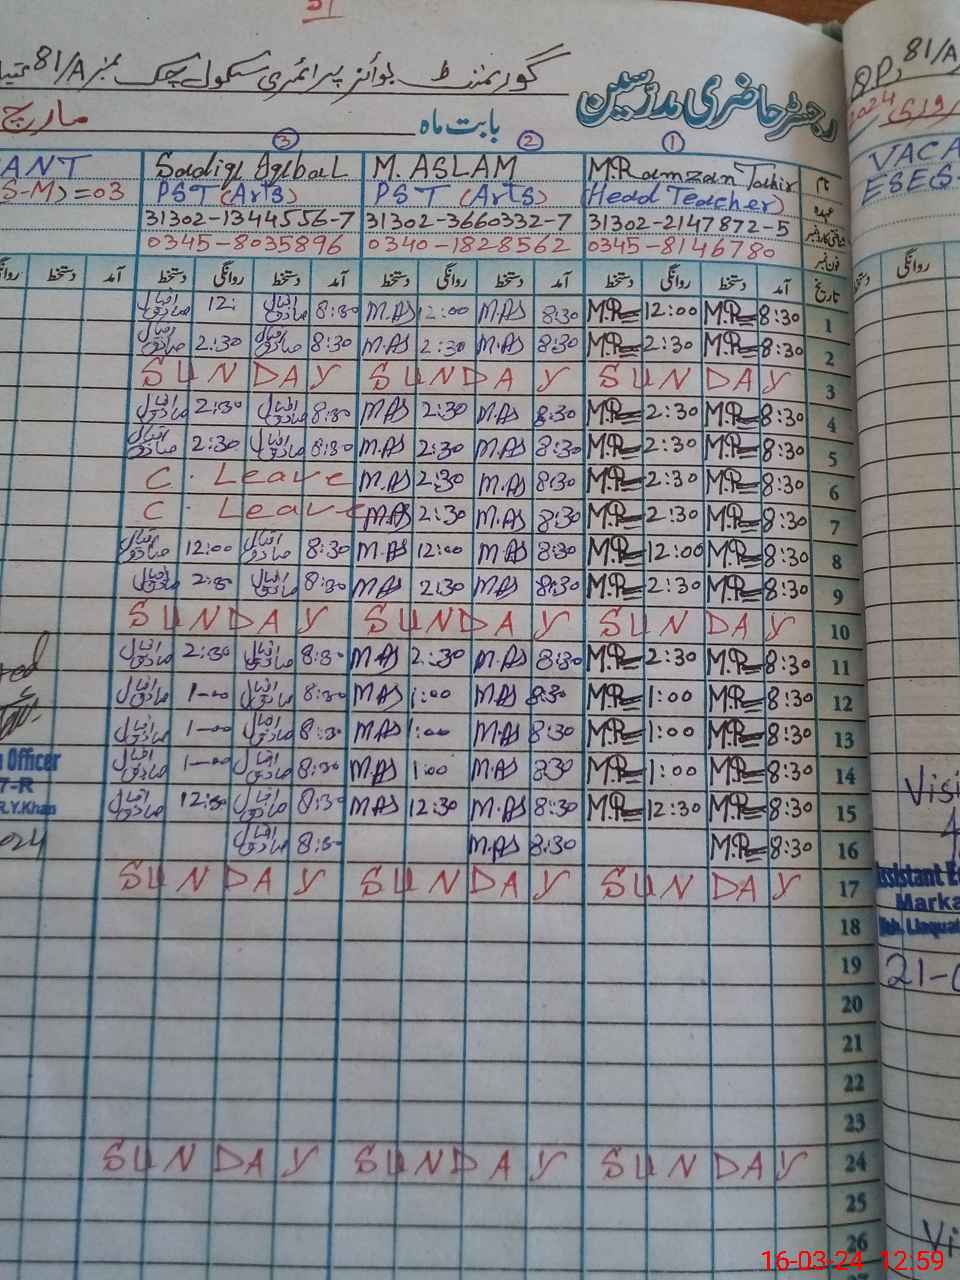 گورنمنٹ بوائز پرائمری سکول چک نمبر 81/A
رجسٹر حاضری مدرسین
بابت ماہ مارچ
③ ② ①
ANT Sadiqe Iqbal M. ASLAM M.Ramzan Tahir نام
S-M)=03 PST (Arts) PST (Arts) (Head Teacher) عہدہ
31302-1344556-7 31302-3660332-7 31302-2147872-5 شناختی کارڈ نمبر
0345-8035896 0340-1828562 0345-8146780 فون نمبر
تاریخ آمد دستخط روانگی دستخط آمد دستخط روانگی دستخط آمد دستخط روانگی دستخط آمد دستخط
صادق اقبال 12: صادق اقبال 8:30 M.AS 12:00 M.AS 8:30 M.R 12:00 M.R 8:30 1
صادق اقبال 2:30 صادق اقبال 8:30 M.AS 2:30 M.AS 8:30 M.R 2:30 M.R 8:30 2
SUNDAY SUNDAY SUNDAY 3
صادق اقبال 2:30 صادق اقبال 8:30 M.AS 2:30 M.AS 8:30 M.R 2:30 M.R 8:30 4
صادق اقبال 2:30 صادق اقبال 8:30 M.AS 2:30 M.AS 8:30 M.R 2:30 M.R 8:30 5
C. Leave M.AS 2:30 M.AS 8:30 M.R 2:30 M.R 8:30 6
C. Leave M.AS 2:30 M.AS 8:30 M.R 2:30 M.R 8:30 7
صادق اقبال 12:00 صادق اقبال 8:30 M.AS 12:00 M.AS 8:30 M.R 12:00 M.R 8:30 8
صادق اقبال 2:30 صادق اقبال 8:30 M.AS 2:30 M.AS 8:30 M.R 2:30 M.R 8:30 9
SUNDAY SUNDAY SUNDAY 10
صادق اقبال 2:30 صادق اقبال 8:30 M.AS 2:30 M.AS 8:30 M.R 2:30 M.R 8:30 11
صادق اقبال 1-00 صادق اقبال 8:30 M.AS 1:00 M.AS 8:30 M.R 1:00 M.R 8:30 12
صادق اقبال 1-00 صادق اقبال 8:30 M.AS 1:00 M.AS 8:30 M.R 1:00 M.R 8:30 13
صادق اقبال 1-00 صادق اقبال 8:30 M.AS 1:00 M.AS 8:30 M.R 1:00 M.R 8:30 14
صادق اقبال 12:30 صادق اقبال 8:30 M.AS 12:30 M.AS 8:30 M.R 12:30 M.R 8:30 15
صادق اقبال 8:30 M.AS 8:30 M.R 8:30 16
SUNDAY SUNDAY SUNDAY 17
18
19
20
21
22
23
SUNDAY SUNDAY SUNDAY 24
25
26
Officer
7-R
R.Y.Khan
024
81/A
2024
VACA
ESE(S
روانگی
Visi
Assistant E
Marka
Liaquat
21-0
Vi
16-03-24 12:59